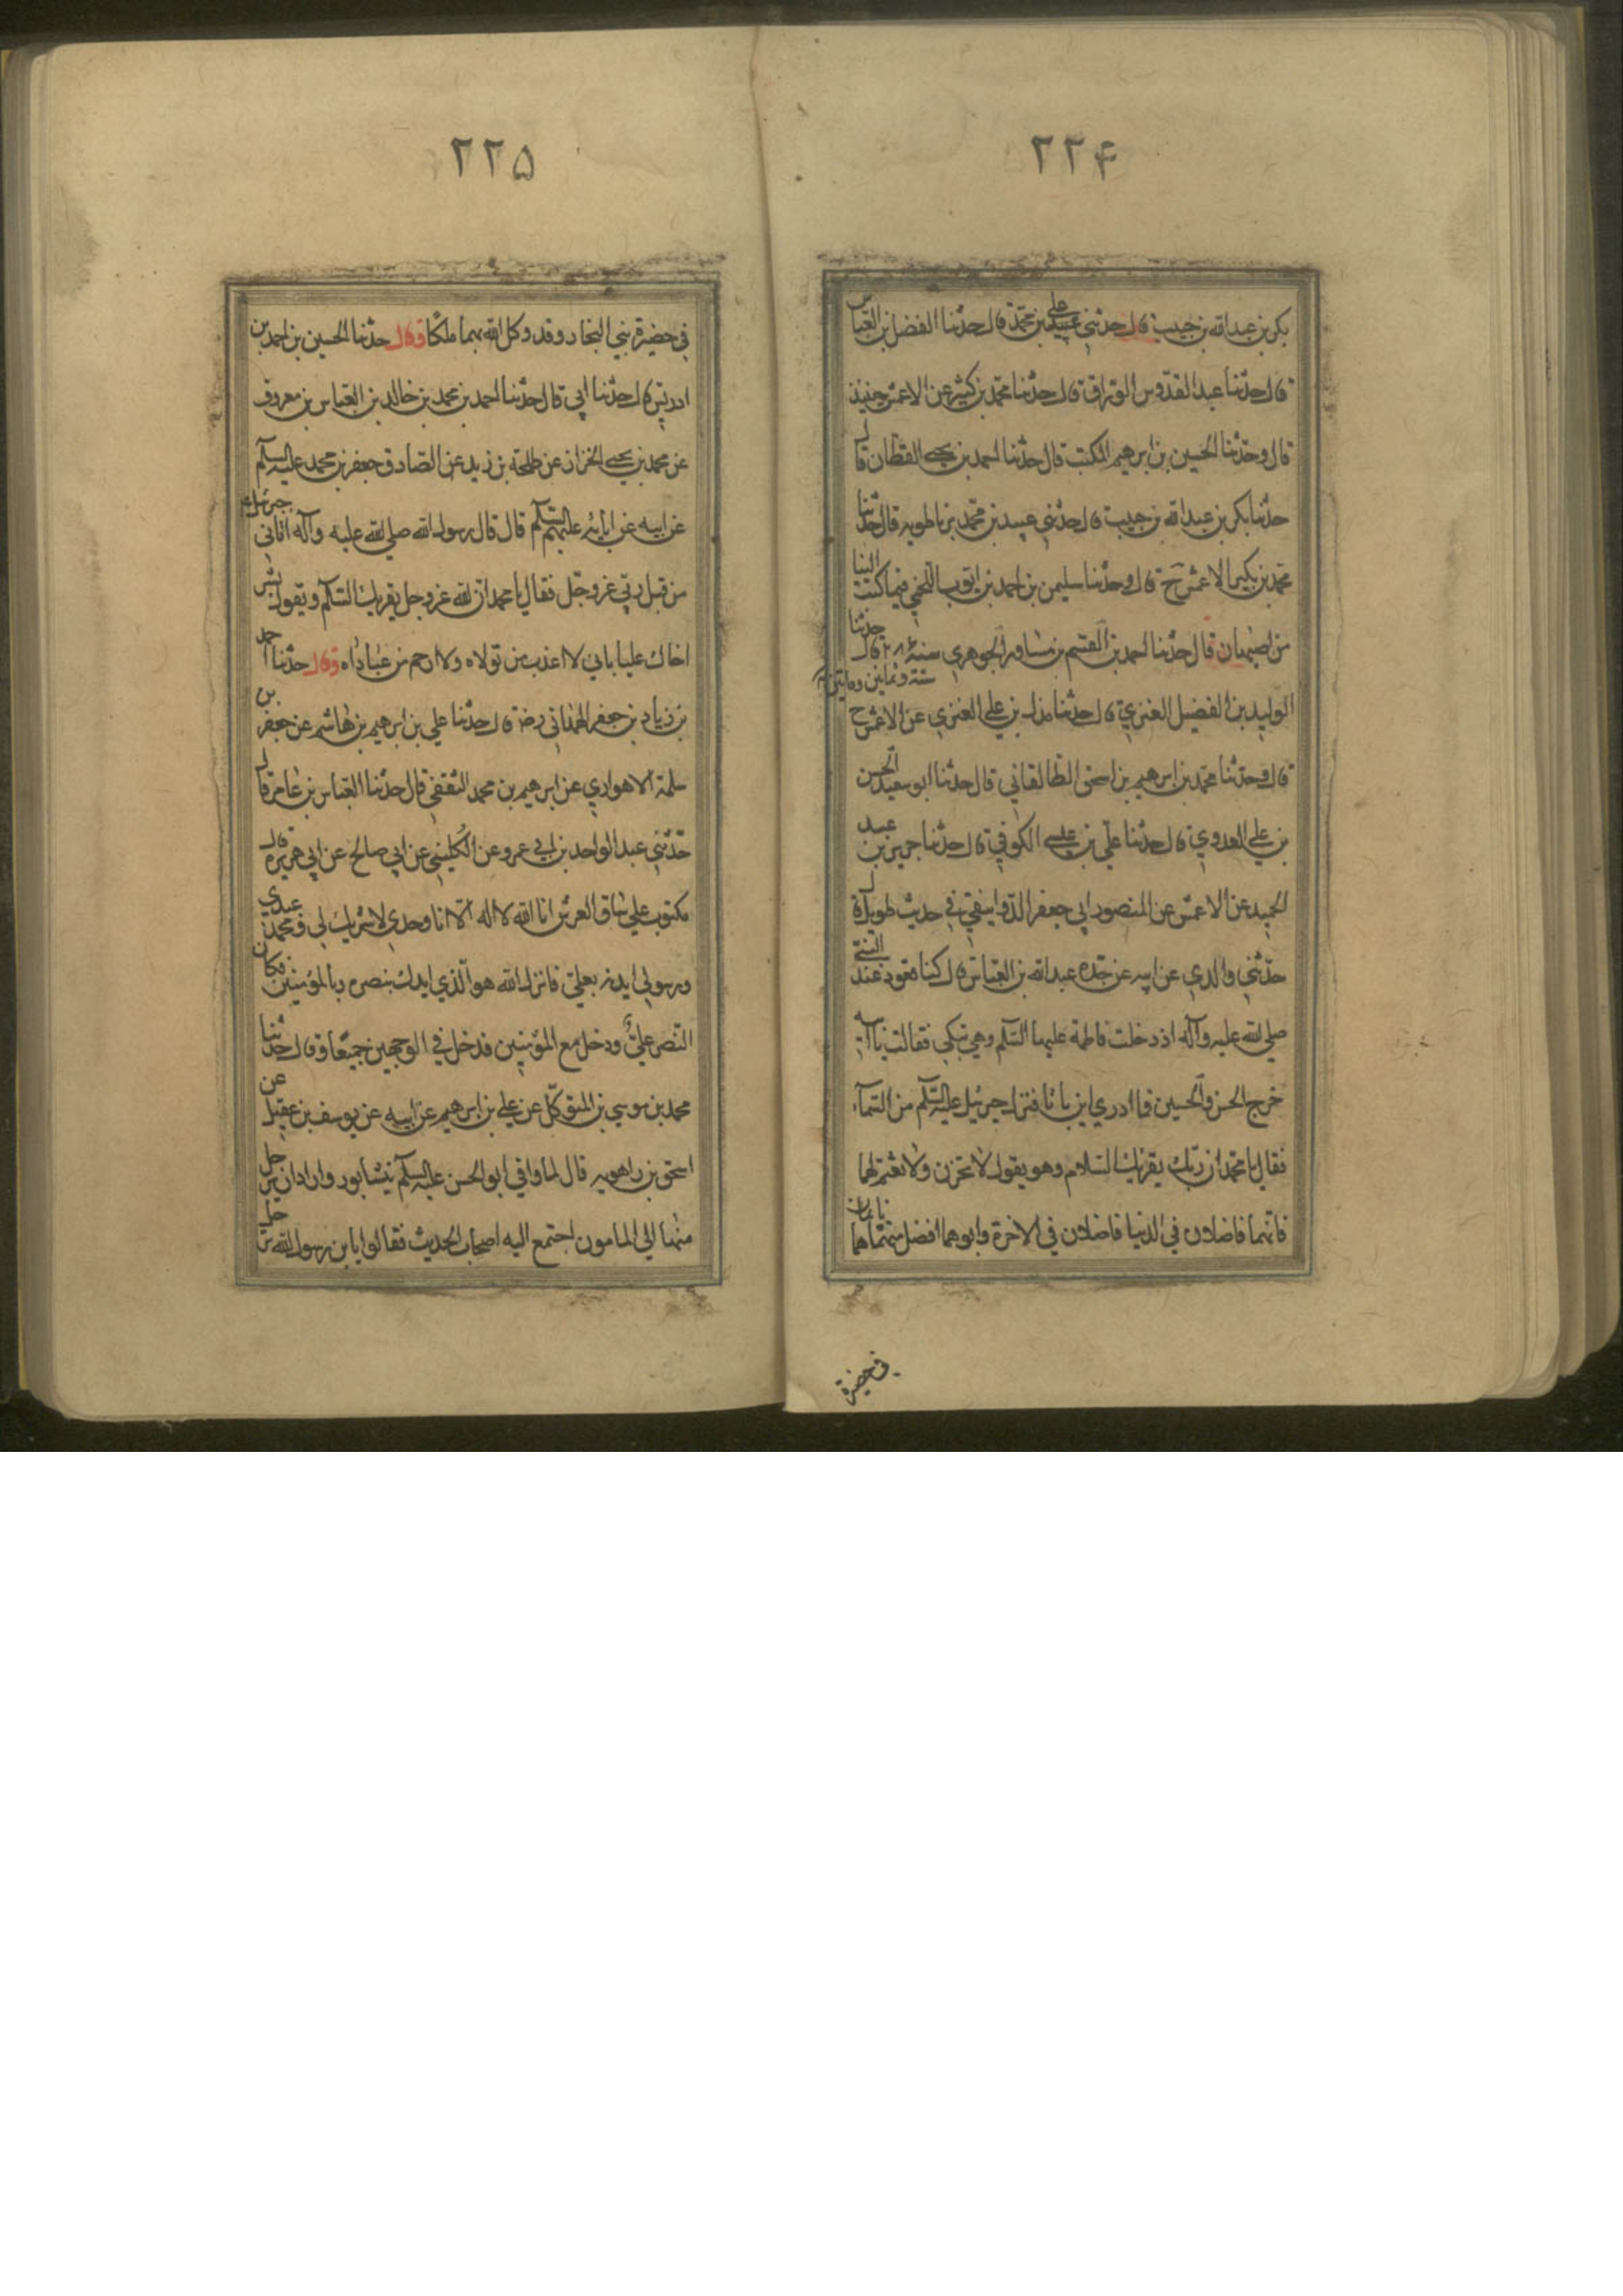 ۲۲۴
بكر بن عبد الله بن حبيب قال حدثني علي بن محمد قال حدثنا الفضل بن العباس
قال حدثنا عبد القدوس الوراق قال حدثنا محمد بن كثير عن الاعمش حينئذ
قال وحدثنا الحسين بن ابرهيم المكتب قال حدثنا احمد بن يحيى القطان قال
حدثنا بكر بن عبد الله بن حبيب قال حدثني عبيد بن محمد بن باطويه قال حدثنا
محمد بن بكير الاعمش ح قال وحدثنا سليمن بن احمد بن ايوب اللخمي فيما كتب الينا
من اصبهان قال حدثنا احمد بن القسم بن مساور الجوهري سنة ۲۸۶ قال حدثنا
ستة وثمانين ومايتين
الوليد بن الفضيل العنزي قال حدثنا مندل بن علي العنزي عن الاعمش ح
قال وحدثنا محمد بن ابرهيم بن اسحق الطالقاني قال حدثنا ابو سعيد الحسن
بن علي العدوي قال حدثنا علي بن عيسى الكوفي قال حدثنا جرير بن عبد
الحميد عن الاعمش عن المنصور ابي جعفر الدوانيقي في حديث طويل قال
حدثني والدي عن ابيه عن جده عبد الله بن العباس قال كنا قعود عند النبي
صلى الله عليه وآله اذ دخلت فاطمة عليها السلم وهي تبكي فقالت يا ابه
خرج الحسن والحسين فما ادري اين باتا فنزل جبرئيل عليه السلم من السماء
فقال يا محمد ان ربك يقرئك السلام وهو يقول لا تحزن ولا تغتم لهما
فانهما فاضلان في الدنيا فاضلان في الاخرة وابوهما افضل منهما هما نايمان
في حضيرة
۲۲۵
في حضيرة بني النجار وقد وكل الله بهما ملكا وقال حدثنا الحسين بن احمد بن
ادريس قال حدثنا ابي قال حدثنا احمد بن محمد بن خالد بن العباس بن معروف
عن محمد بن يحيى الخزاز عن طلحة بن زيد عن الصادق جعفر بن محمد عليه السلم
عن ابيه عن ابائه عليهم السلم قال قال رسول الله صلى الله عليه وآله اتاني جبرئيل
من قبل ربي عز وجل فقال يا محمد ان الله عز وجل يقرئك السلم ويقول بشر
اخاك عليا باني لا اعذب من تولاه ولا ارحم من عاداه وقال حدثنا احمد
بن زياد بن جعفر الهمداني رضه قال حدثنا علي بن ابرهيم بن هاشم عن جعفر بن
سلمة الاهوازي عن ابرهيم بن محمد الثقفي قال حدثنا العباس بن عامر قال
حدثني عبد الواحد بن ابي عمرو عن الكليني عن ابي صالح عن ابي هريرة قال
مكتوب على ساق العرش انا الله لا اله الا انا وحدي لا شريك لي ومحمد عبدي
ورسولي ايدته بعلي فانزل الله هو الذي ايدك بنصره وبالمؤمنين فكان
النصر علي ودخل مع المؤمنين فدخل في الوجهين جميعا وقال حدثنا
محمد بن موسى بن المتوكل عن علي بن ابرهيم عن ابيه عن يوسف بن عقيل عن
اسحق بن راهويه قال لما وافي ابو الحسن عليه السلم نيشابور واراد ان يرحل
منها الى المامون اجتمع اليه اصحاب الحديث فقالوا يا بن رسول الله ترحل